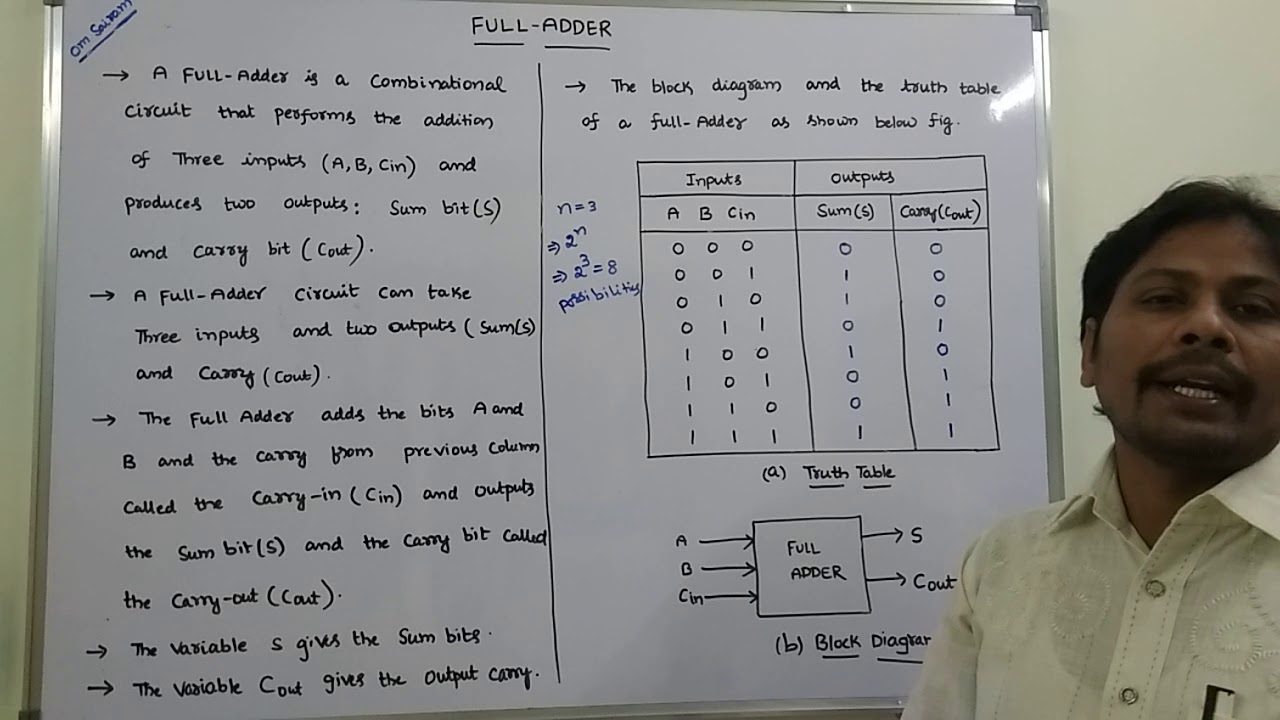 Om Sairam
FULL-ADDER
→ A FULL-Adder is a Combinational
Circuit that performs the addition
of Three inputs (A, B, Cin) and
produces two outputs: Sum bit(S)
and carry bit (Cout).
→ A Full-Adder Circuit can take
Three inputs and two outputs (Sum(s)
and Carry (Cout).
→ The Full Adder adds the bits A and
B and the carry from previous column
called the carry-in (Cin) and outputs
the Sum bit(s) and the carry bit called
the carry-out (Cout).
→ The variable S gives the Sum bits.
→ The variable Cout gives the output carry.
→ The block diagram and the truth table
of a full-Adder as shown below fig.
n=3
⇒ 2ⁿ
⇒ 2³ = 8
possibilities
Inputs Outputs
A B Cin Sum(s) Carry(Cout)
0 0 0 0 0
0 0 1 1 0
0 1 0 1 0
0 1 1 0 1
1 0 0 1 0
1 0 1 0 1
1 1 0 0 1
1 1 1 1 1
(a) Truth Table
A
B
Cin
FULL
ADDER
S
Cout
(b) Block Diagra